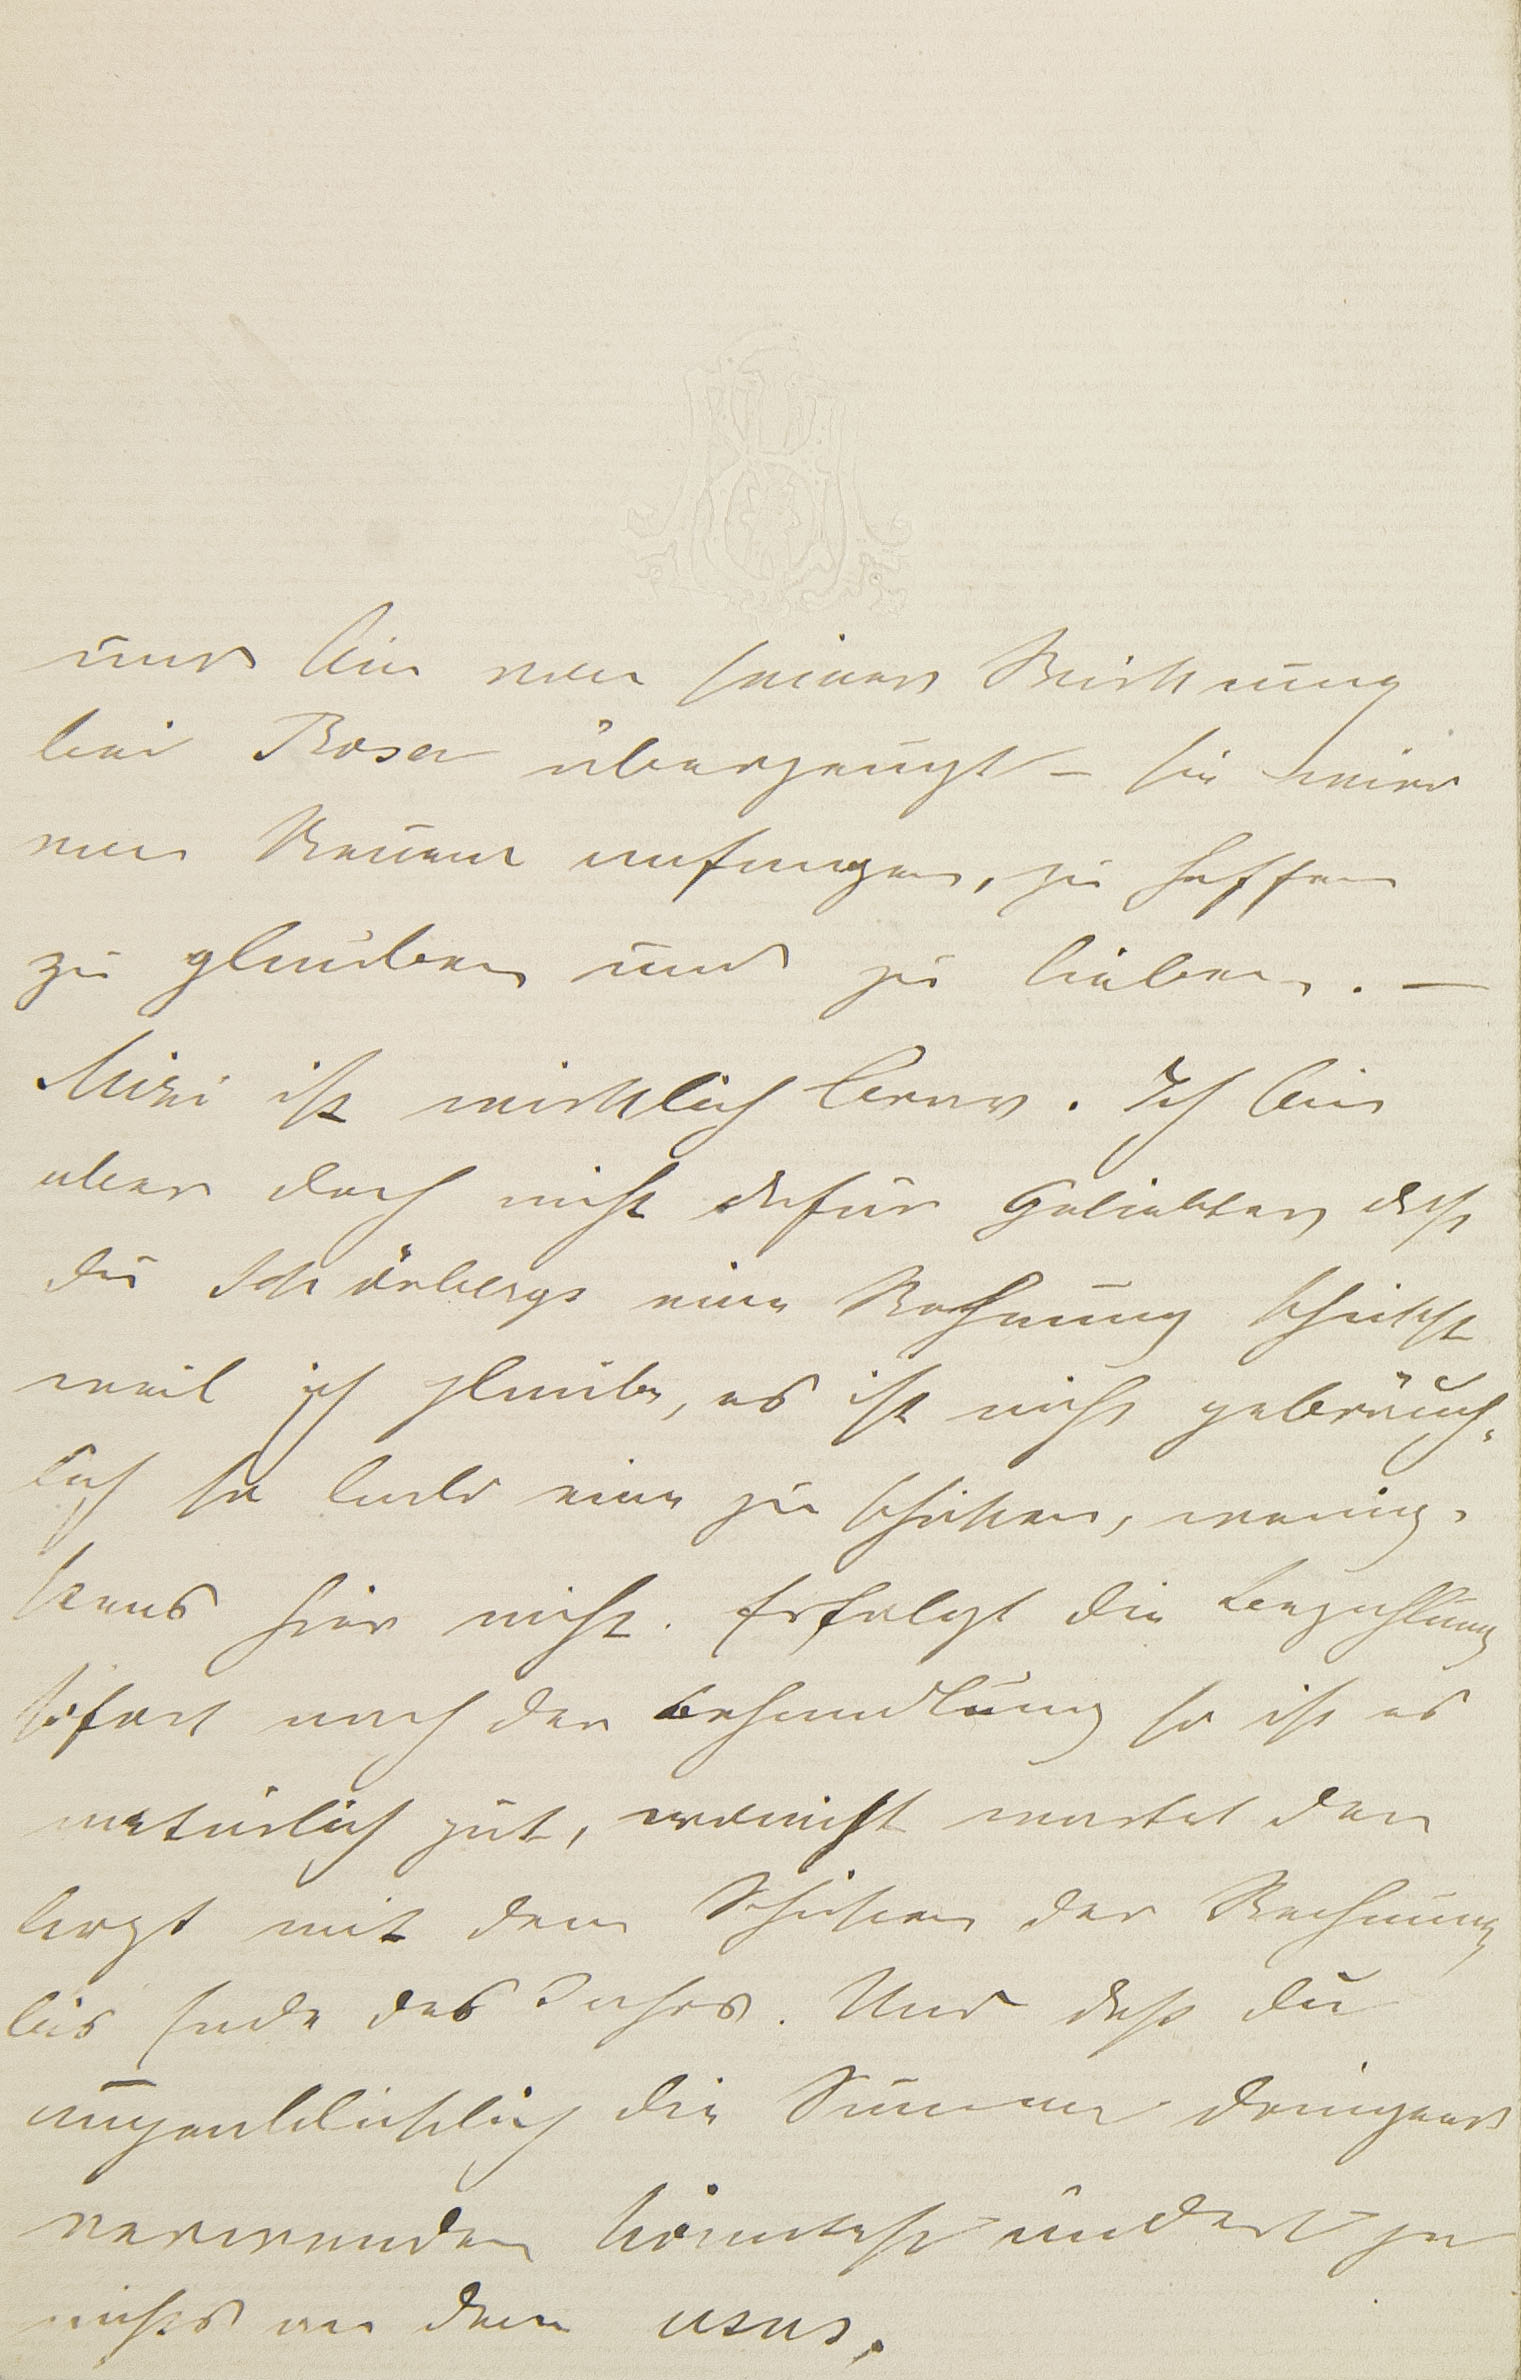 und bin von seiner Wirkung
bei Rosa überzeugt – sie wird
von Neuem anfangen, zu hoffen
zu glauben und zu lieben. —
Mizi ist wirklich brav. Ich bin
aber doch nicht dafür Geliebter, daß
du Schönbergs eine Rechnung schickst
weil ich glaube, es ist nicht gebräuch-
lich so bald eine zu schicken, wenig-
stens hier nicht. Erfolgt die Bezahlung
sofort nach der Behandlung so ist es
natürlich gut, wo nicht wartet der
Arzt mit dem Schicken der Rechnung
bis Ende des Jahres. Und daß du
augenblicklich die Summe dringend
verwenden könntest ändert ja
nichts an dem usus.